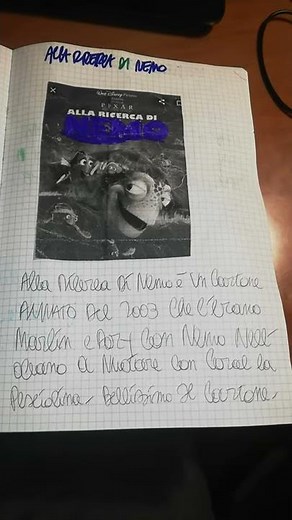 ALLA RICERCA DI NEMO
WALT DISNEY Pictures
PIXAR
ALLA RICERCA DI
NEMO
Alla Ricerca Di Nemo è Un Cartone
ANIMATO Del 2003 Che C'erano
Marlin e Dory Con Nemo Nell
oceano A Nuotare Con Coral la
Pesciolina, Bellissimo Il Cartone,